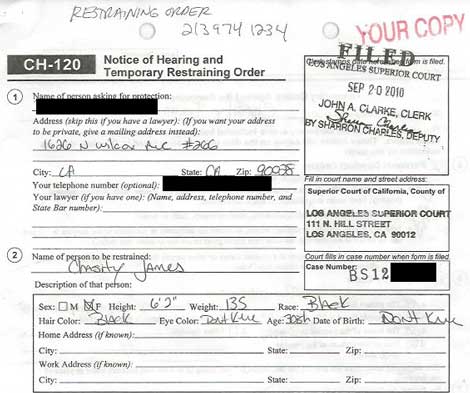 RESTRAINING ORDER
213 974 1234
YOUR COPY
CH-120
Notice of Hearing and
Temporary Restraining Order
Clerk stamps date here when form is filed.
FILED
LOS ANGELES SUPERIOR COURT
SEP 20 2010
JOHN A. CLARKE, CLERK
BY SHARRON CHARLES, DEPUTY
1
Name of person asking for protection:
Address (skip this if you have a lawyer): (If you want your address
to be private, give a mailing address instead):
1626 N Wilcox Ave #266
City: LA State: CA Zip: 90028
Your telephone number (optional):
Your lawyer (if you have one): (Name, address, telephone number, and
State Bar number):
Fill in court name and street address:
Superior Court of California, County of
LOS ANGELES SUPERIOR COURT
111 N. HILL STREET
LOS ANGELES, CA 90012
2
Name of person to be restrained:
Chasity James
Court fills in case number when form is filed.
Case Number:
BS12
Description of that person:
Sex: M F Height: 6'2" Weight: 135 Race: Black
Hair Color: Black Eye Color: Dont Know Age: 30ish Date of Birth: Dont Know
Home Address (if known):
City: State: Zip:
Work Address (if known):
City: State: Zip: